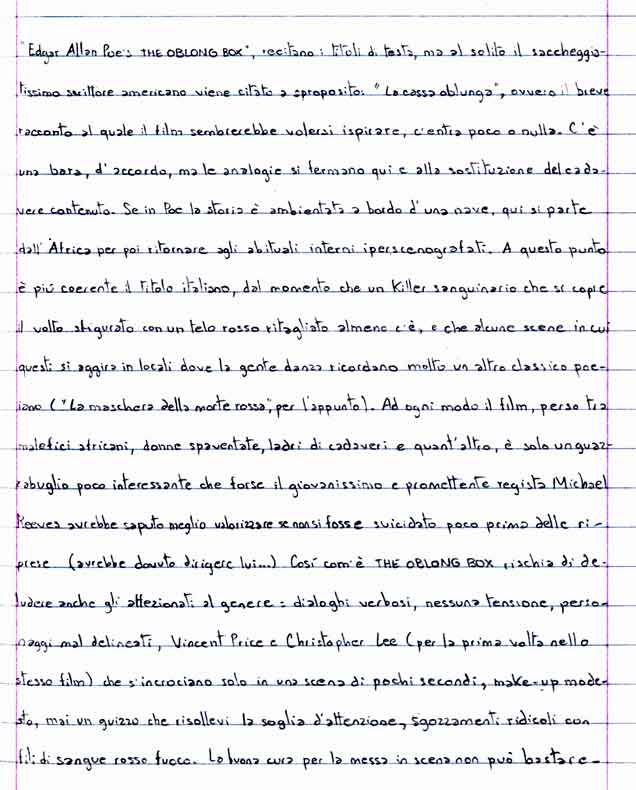 "Edgar Allan Poe's THE OBLONG BOX", recitano i titoli di testa, ma al solito il saccheggia-
tissimo scrittore americano viene citato a sproposito: "La cassa oblunga", ovvero il breve
racconto al quale il film sembrerebbe volersi ispirare, c'entra poco o nulla. C'è
una bara, d'accordo, ma le analogie si fermano qui e alla sostituzione del cada-
vere contenuto. Se in Poe la storia è ambientata a bordo d'una nave, qui si parte
dall'Africa per poi ritornare agli abituali interni iperscenografati. A questo punto
è più coerente il titolo italiano, dal momento che un Killer sanguinario che si copre
il volto sfigurato con un telo rosso ritagliato almeno c'è, e che alcune scene in cui
questi si aggira in locali dove la gente danza ricordano molto un altro classico poe-
iano ("La maschera della morte rossa", per l'appunto). Ad ogni modo il film, perso tra
malefici africani, donne spaventate, ladri di cadaveri e quant'altro, è solo un guaz-
zabuglio poco interessante che forse il giovanissimo e promettente regista Michael
Reeves avrebbe saputo meglio valorizzare se non si fosse suicidato poco prima delle ri-
prese (avrebbe dovuto dirigere lui...) Così com'è THE OBLONG BOX rischia di de-
ludere anche gli affezionati al genere: dialoghi verbosi, nessuna tensione, perso-
naggi mal delineati, Vincent Price e Christopher Lee (per la prima volta nello
stesso film) che s'incrociano solo in una scena di pochi secondi, make-up mode-
sto, mai un guizzo che risollevi la soglia d'attenzione, sgozzamenti ridicoli con
fili di sangue rosso fuoco. La buona cura per la messa in scena non può bastare.